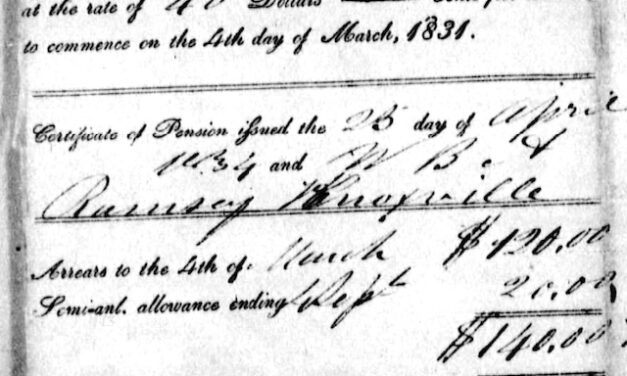 at the rate of 40 Dollars
to commence on the 4th day of March, 1831.
Certificate of Pension issued the 25 day of April
1834 and W B
Ramsey Knoxville
Arrears to the 4th of March $120.00
Semi-anl. allowance ending Sept 20.00
$140.00